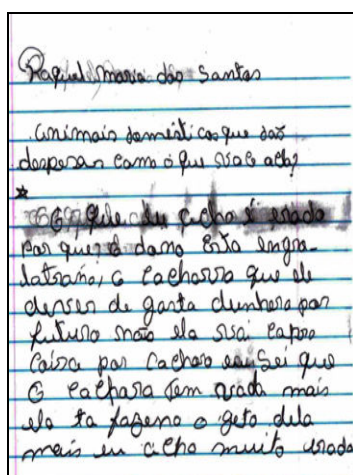 Raquel maria dos Santos
animais domésticos que dão
despersas como o que você acha?
*
O que eu acho é erado
por que o dano esta engra-
latrano, o cachorro que ele
de ganta dinhero por
futuro não ela vai
caisa por cachoro eu Sei que
O cachara tem nada mais
ela ta fazeno o geto dela
mais eu acho muito erado